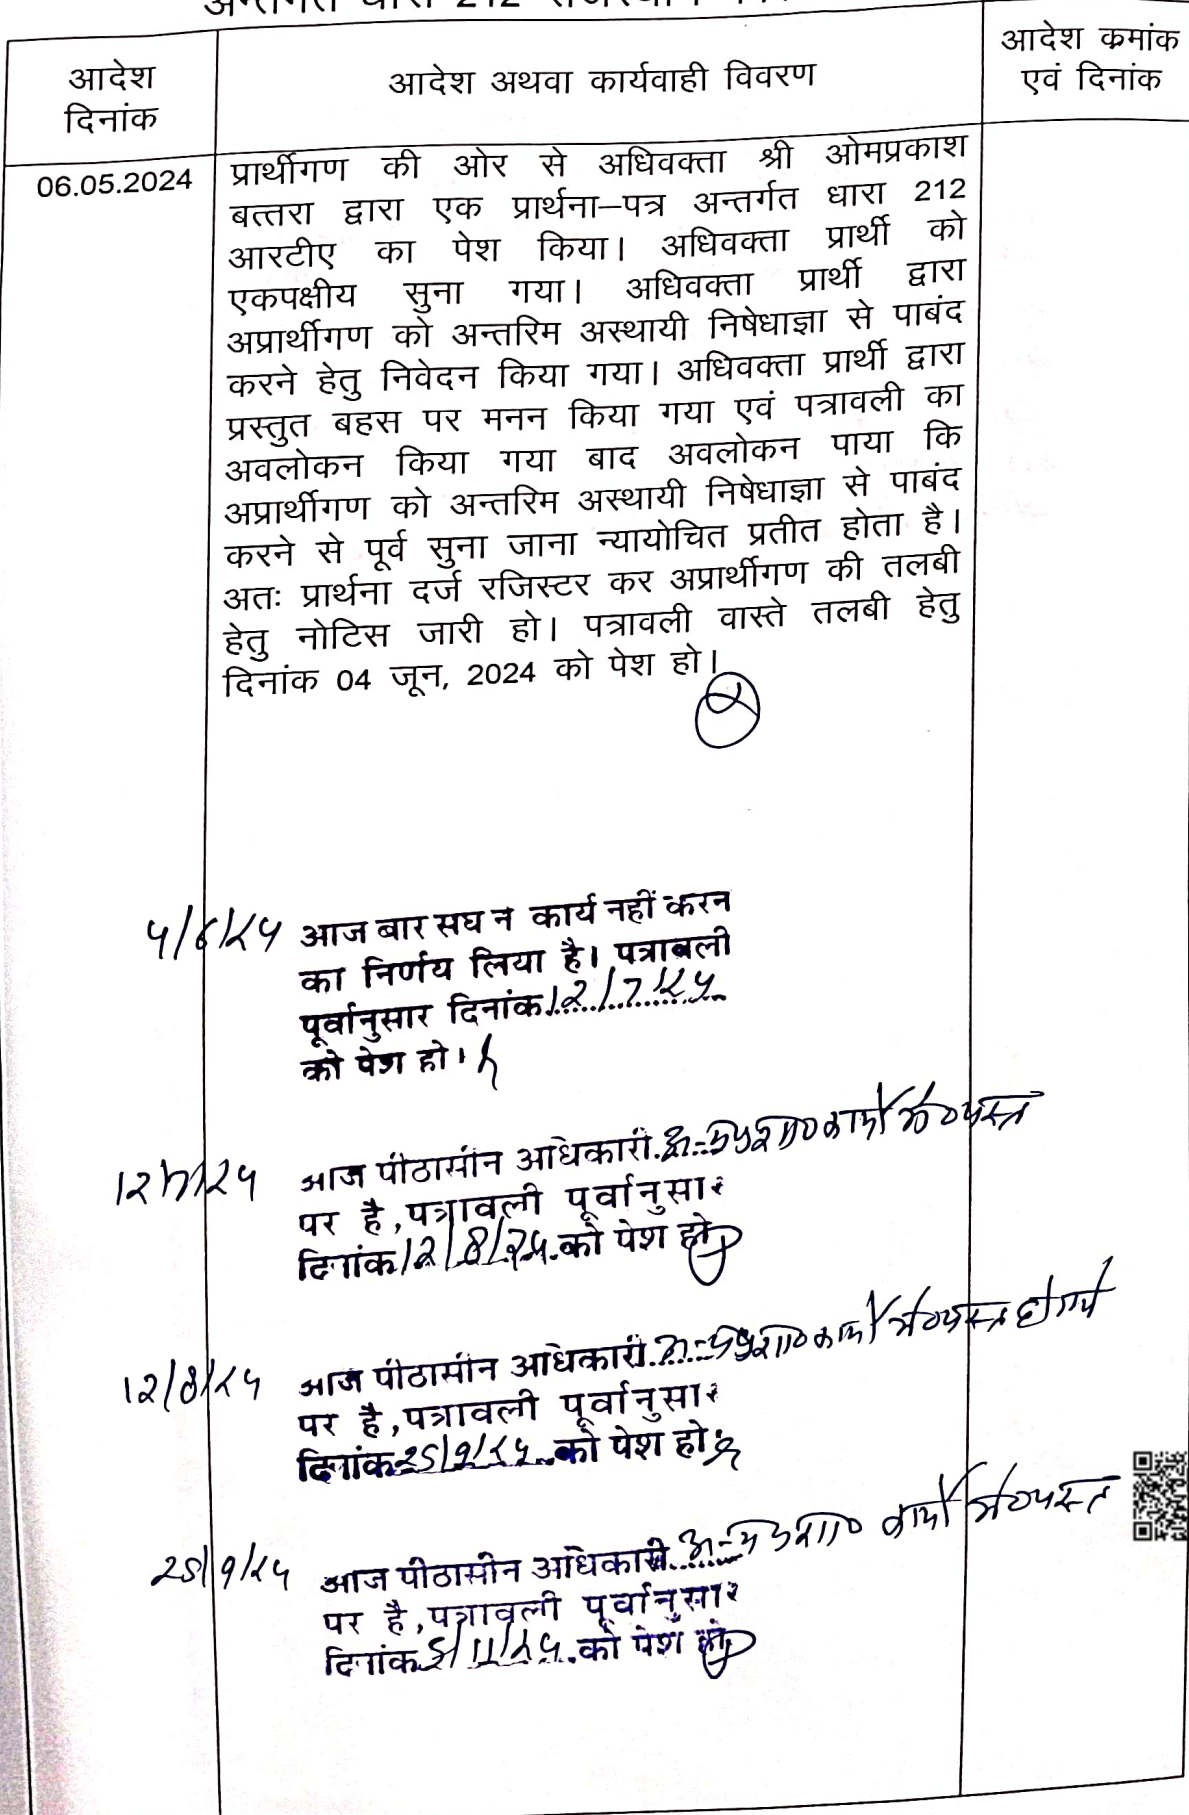 अन्तर्गत धारा 212
आदेश दिनांक
आदेश अथवा कार्यवाही विवरण
आदेश क्रमांक एवं दिनांक
06.05.2024
प्रार्थीगण की ओर से अधिवक्ता श्री ओमप्रकाश
बत्तरा द्वारा एक प्रार्थना–पत्र अन्तर्गत धारा 212
आरटीए का पेश किया। अधिवक्ता प्रार्थी को
एकपक्षीय सुना गया। अधिवक्ता प्रार्थी द्वारा
अप्रार्थीगण को अन्तरिम अस्थायी निषेधाज्ञा से पाबंद
करने हेतु निवेदन किया गया। अधिवक्ता प्रार्थी द्वारा
प्रस्तुत बहस पर मनन किया गया एवं पत्रावली का
अवलोकन किया गया बाद अवलोकन पाया कि
अप्रार्थीगण को अन्तरिम अस्थायी निषेधाज्ञा से पाबंद
करने से पूर्व सुना जाना न्यायोचित प्रतीत होता है।
अतः प्रार्थना दर्ज रजिस्टर कर अप्रार्थीगण की तलबी
हेतु नोटिस जारी हो। पत्रावली वास्ते तलबी हेतु
दिनांक 04 जून, 2024 को पेश हो।
4/6/24 आज बार सघ न कार्य नहीं करन
का निर्णय लिया है। पत्रावली
पूर्वानुसार दिनांक 12/7/24
को पेश हो।
12/7/24 आज पीठासीन अधिकारी कार्य में व्यस्त
पर है, पत्रावली पूर्वानुसार
दिनांक 12/8/24 को पेश हो
12/8/24 आज पीठासीन अधिकारी कार्य में व्यस्त
पर है, पत्रावली पूर्वानुसार
दिनांक 25/9/24 को पेश हो
25/9/24 आज पीठासीन अधिकारी कार्य में व्यस्त
पर है, पत्रावली पूर्वानुसार
दिनांक 5/11/24 को पेश हो